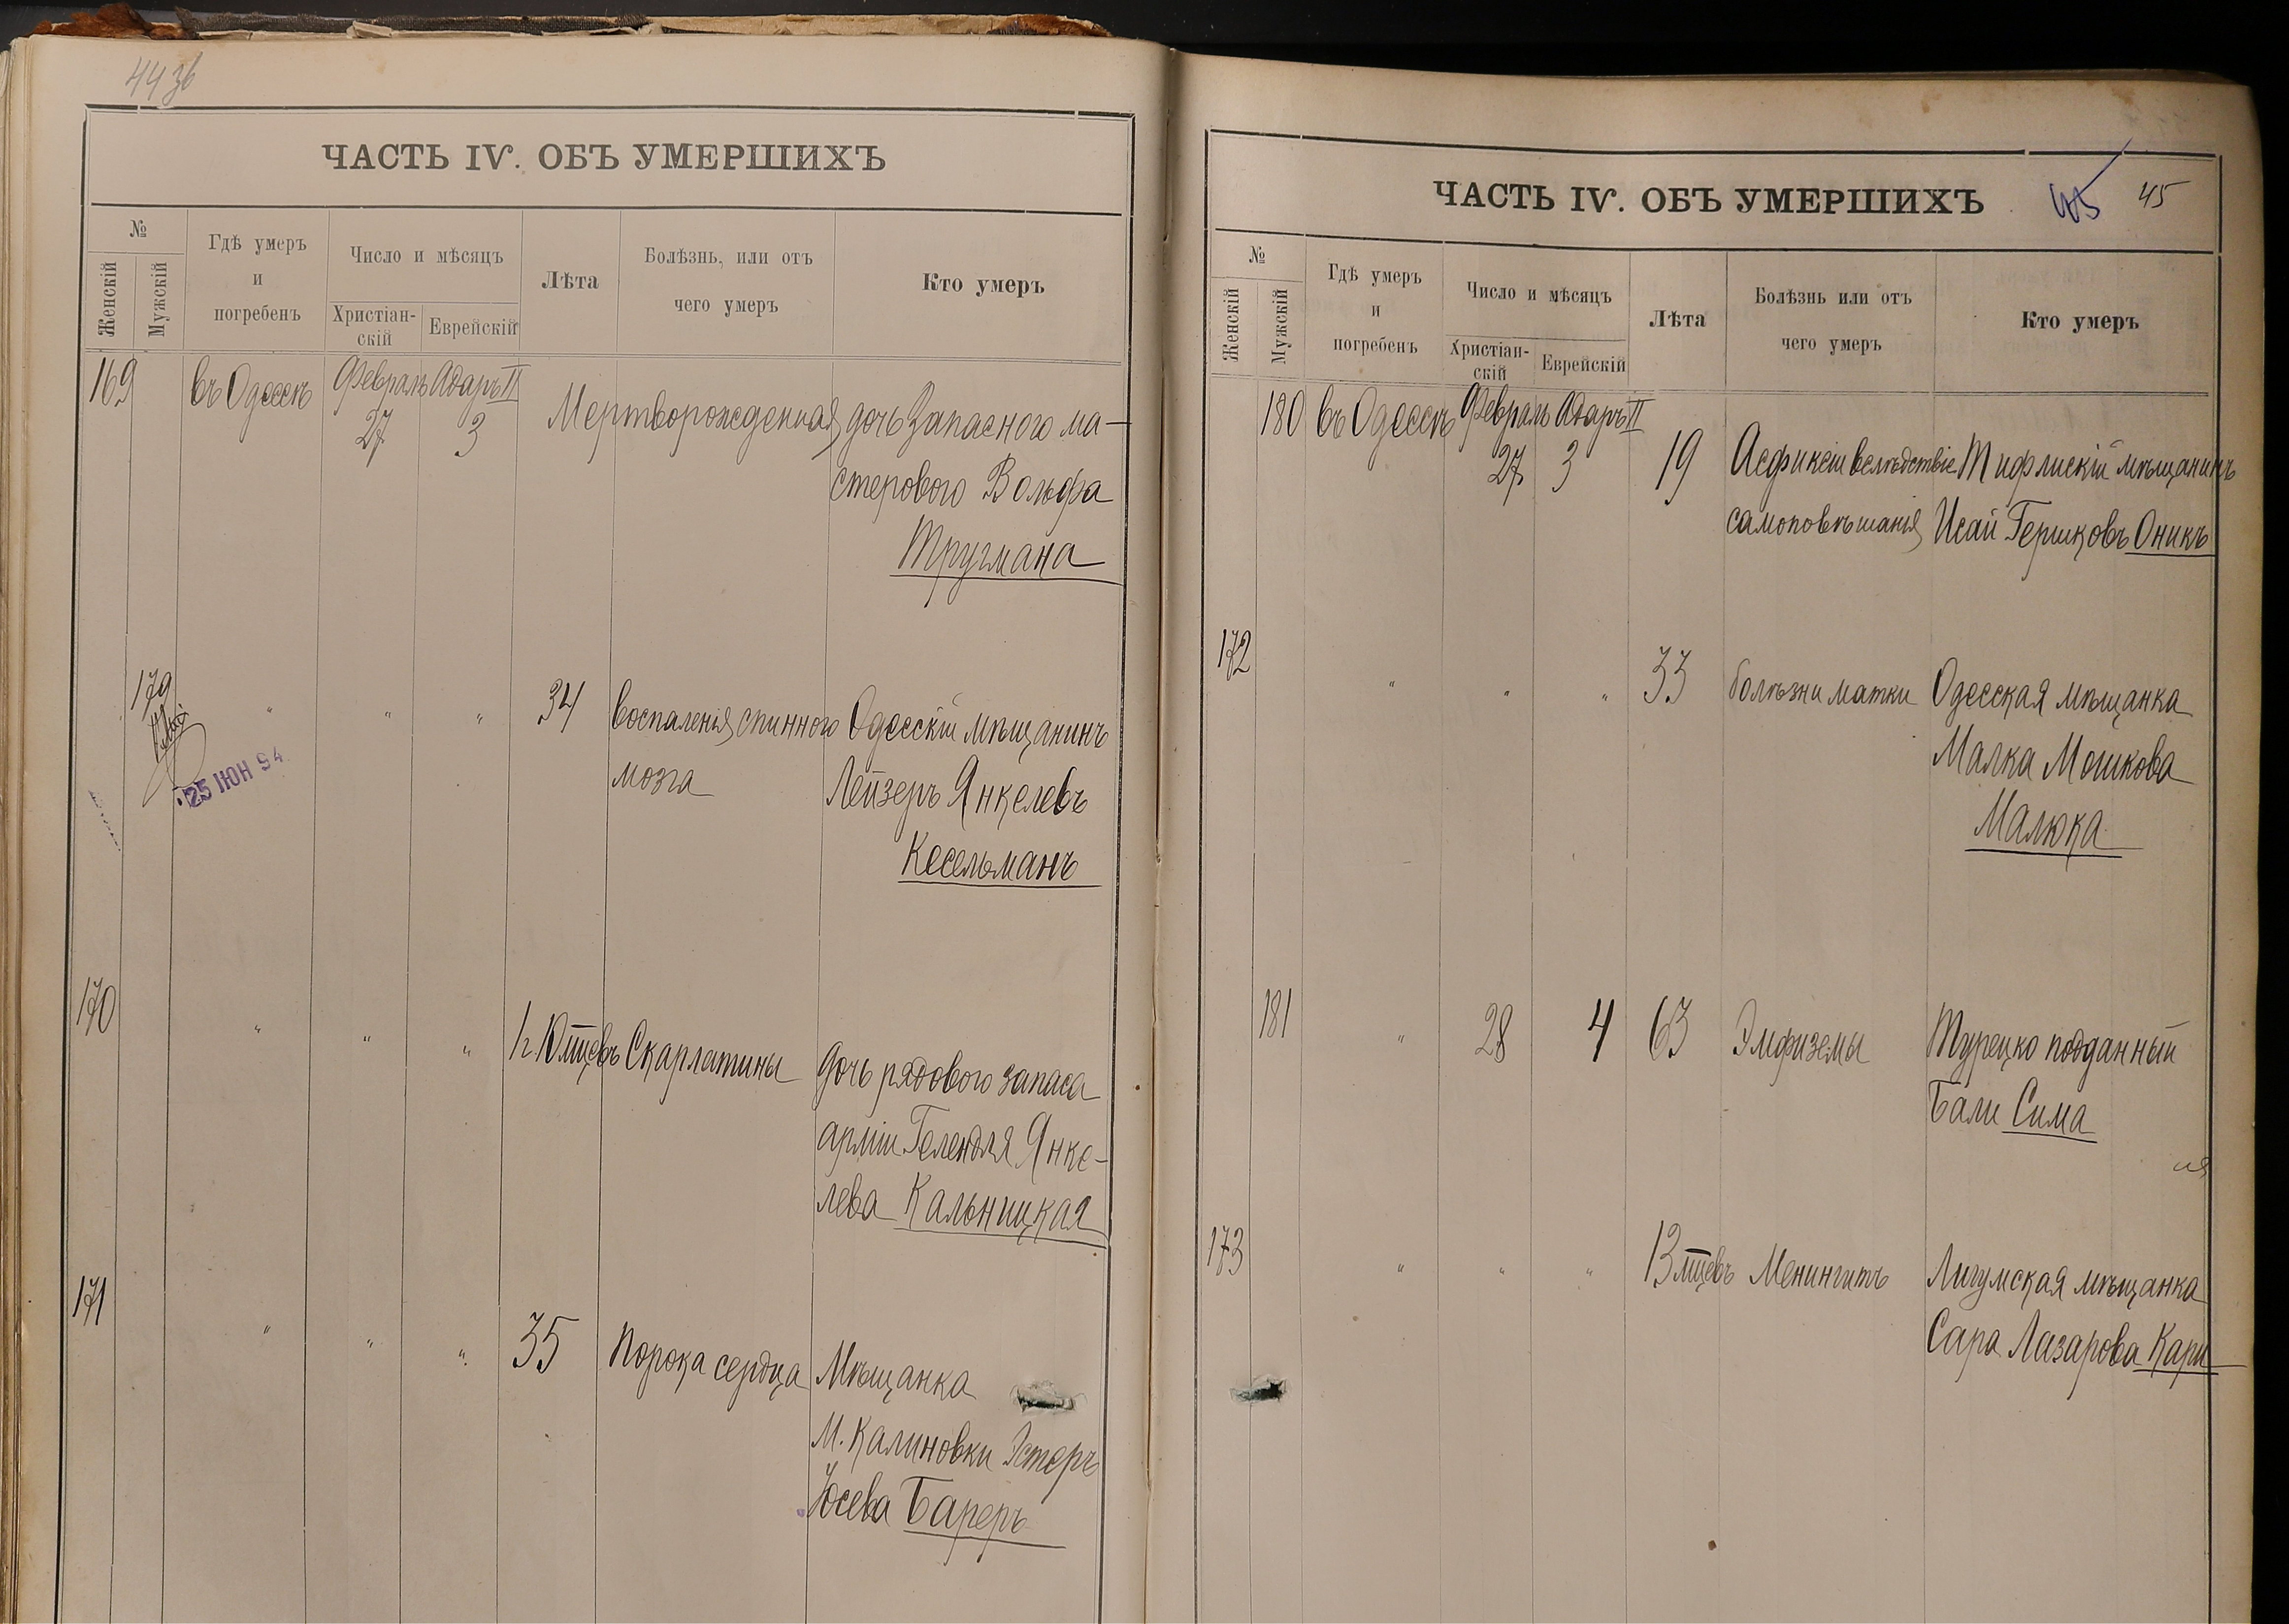 44 зв
ЧАСТЬ IV. ОБЪ УМЕРШИХЪ
№
Женскій
Мужскій
Гдѣ умеръ
и
погребенъ
Число и мѣсяцъ
Христіан-
скій
Еврейскій
Лѣта
Болѣзнь, или отъ
чего умеръ
Кто умеръ
169 въ Одессѣ Февраль Адаръ II
27 3 Мертворожденная дочь Запасного ма-
стерового Вольфа
Тругмана
179 " " " 34 воспаленія спинного Одесскій мѣщанинъ
мозга Лейзеръ Янкелевъ
Кесельманъ
25 ІЮН 94
170 " " " 1 г. 10 мцевъ Скарлатины Дочь рядового запаса
арміи Гелендля Янке-
лева Кальницкая
171 " " " 35 Порока сердца Мѣщанка
М. Калиновки Эстеръ
Іосева Береръ
ЧАСТЬ IV. ОБЪ УМЕРШИХЪ
45 45
№
Женскій
Мужскій
Гдѣ умеръ
и
погребенъ
Число и мѣсяцъ
Христіан-
скій
Еврейскій
Лѣта
Болѣзнь или отъ
чего умеръ
Кто умеръ
180 въ Одессѣ Февраль Адаръ II
27 3 19 Асфиксіи вслѣдствіе Тифлискій мѣщанинъ
самоповѣшанія Исай Гершковъ Оникъ
172 " " " 33 болѣзни матки Одесская мѣщанка
Малка Мошкова
Малюка
181 " 28 4 63 Эмфиземы Турецко подданный
Бали Сима
173 " " " 13 мцевъ Менингитъ Лигумская мѣщанка
Сара Лазарова Карп